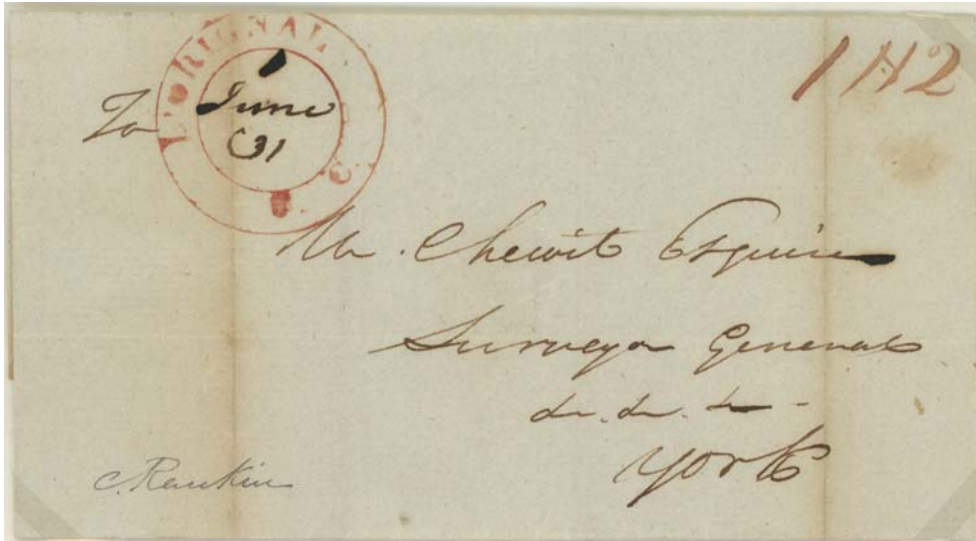 L'ORIGNAL
June
31
U. C.
To
1/1½
Wm. Chewit Esquire
Surveyor General
&c. &c. &c. -
York
C. Rankin